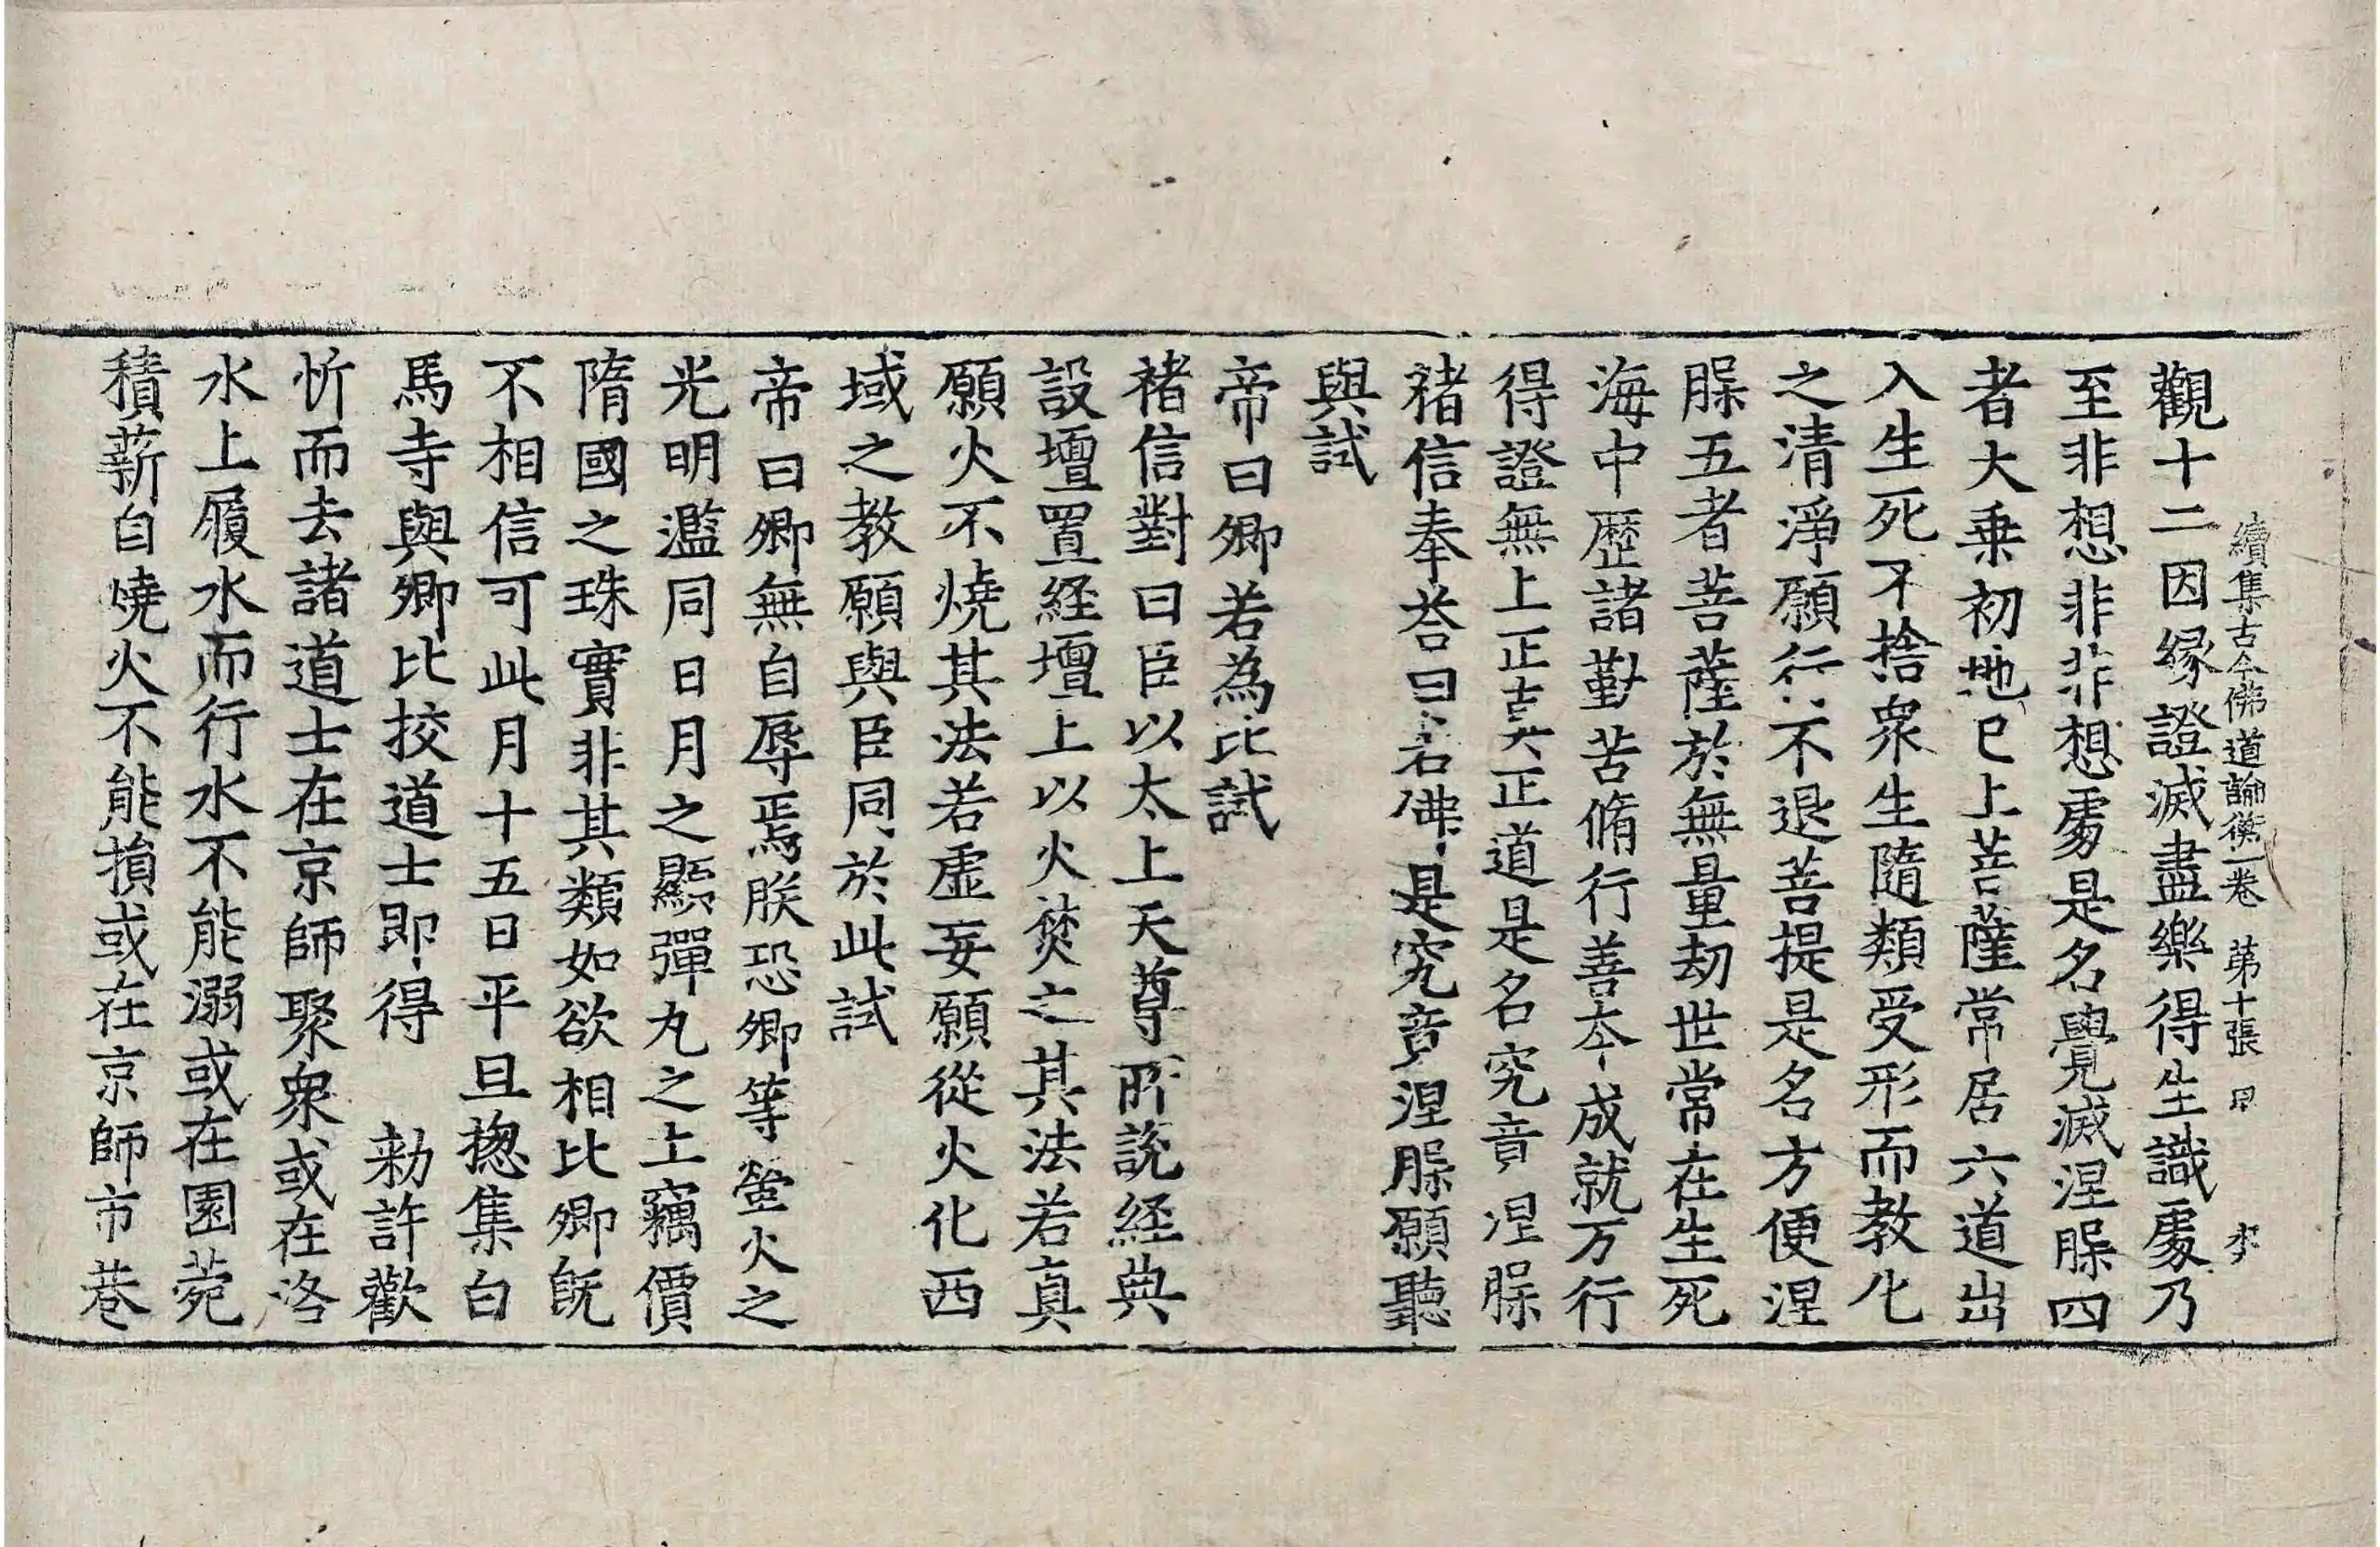 續集古今佛道論衡一卷 苐十張
觀十二因縁證滅盡樂得生識䖏乃
至非想非非想䖏是名覺滅涅脲四
者大乗初地已上菩薩常居六道出
入生死不捨衆生隨類受形而教化
之清淨願行不退菩提是名方便涅
脲五者菩薩於無量劫世常在生死
海中歴諸勤苦脩行善本成就万行
得證無上正真正道是名究竟涅脲
褚信奉荅曰若佛是究竟涅脲願聽
與試
帝曰卿若為比試
褚信對曰臣以太上天尊所說経典
設壇置経壇上以火焚之其法若真
願火不燒其法若虛妄願從火化西
域之教願與臣同於此試
帝曰卿無自辱焉朕恐卿等螢火之
光明濫同日月之顯彈丸之土竊價
隋國之珠實非其類如欲相比卿旣
不相信可此月十五日平旦揔集白
馬寺與卿比挍道士即得 勑許歡
忻而去諸道士在京師聚衆或在洛
水上履水而行水不能溺或在園菀
積薪自燒火不能損或在京師市巷